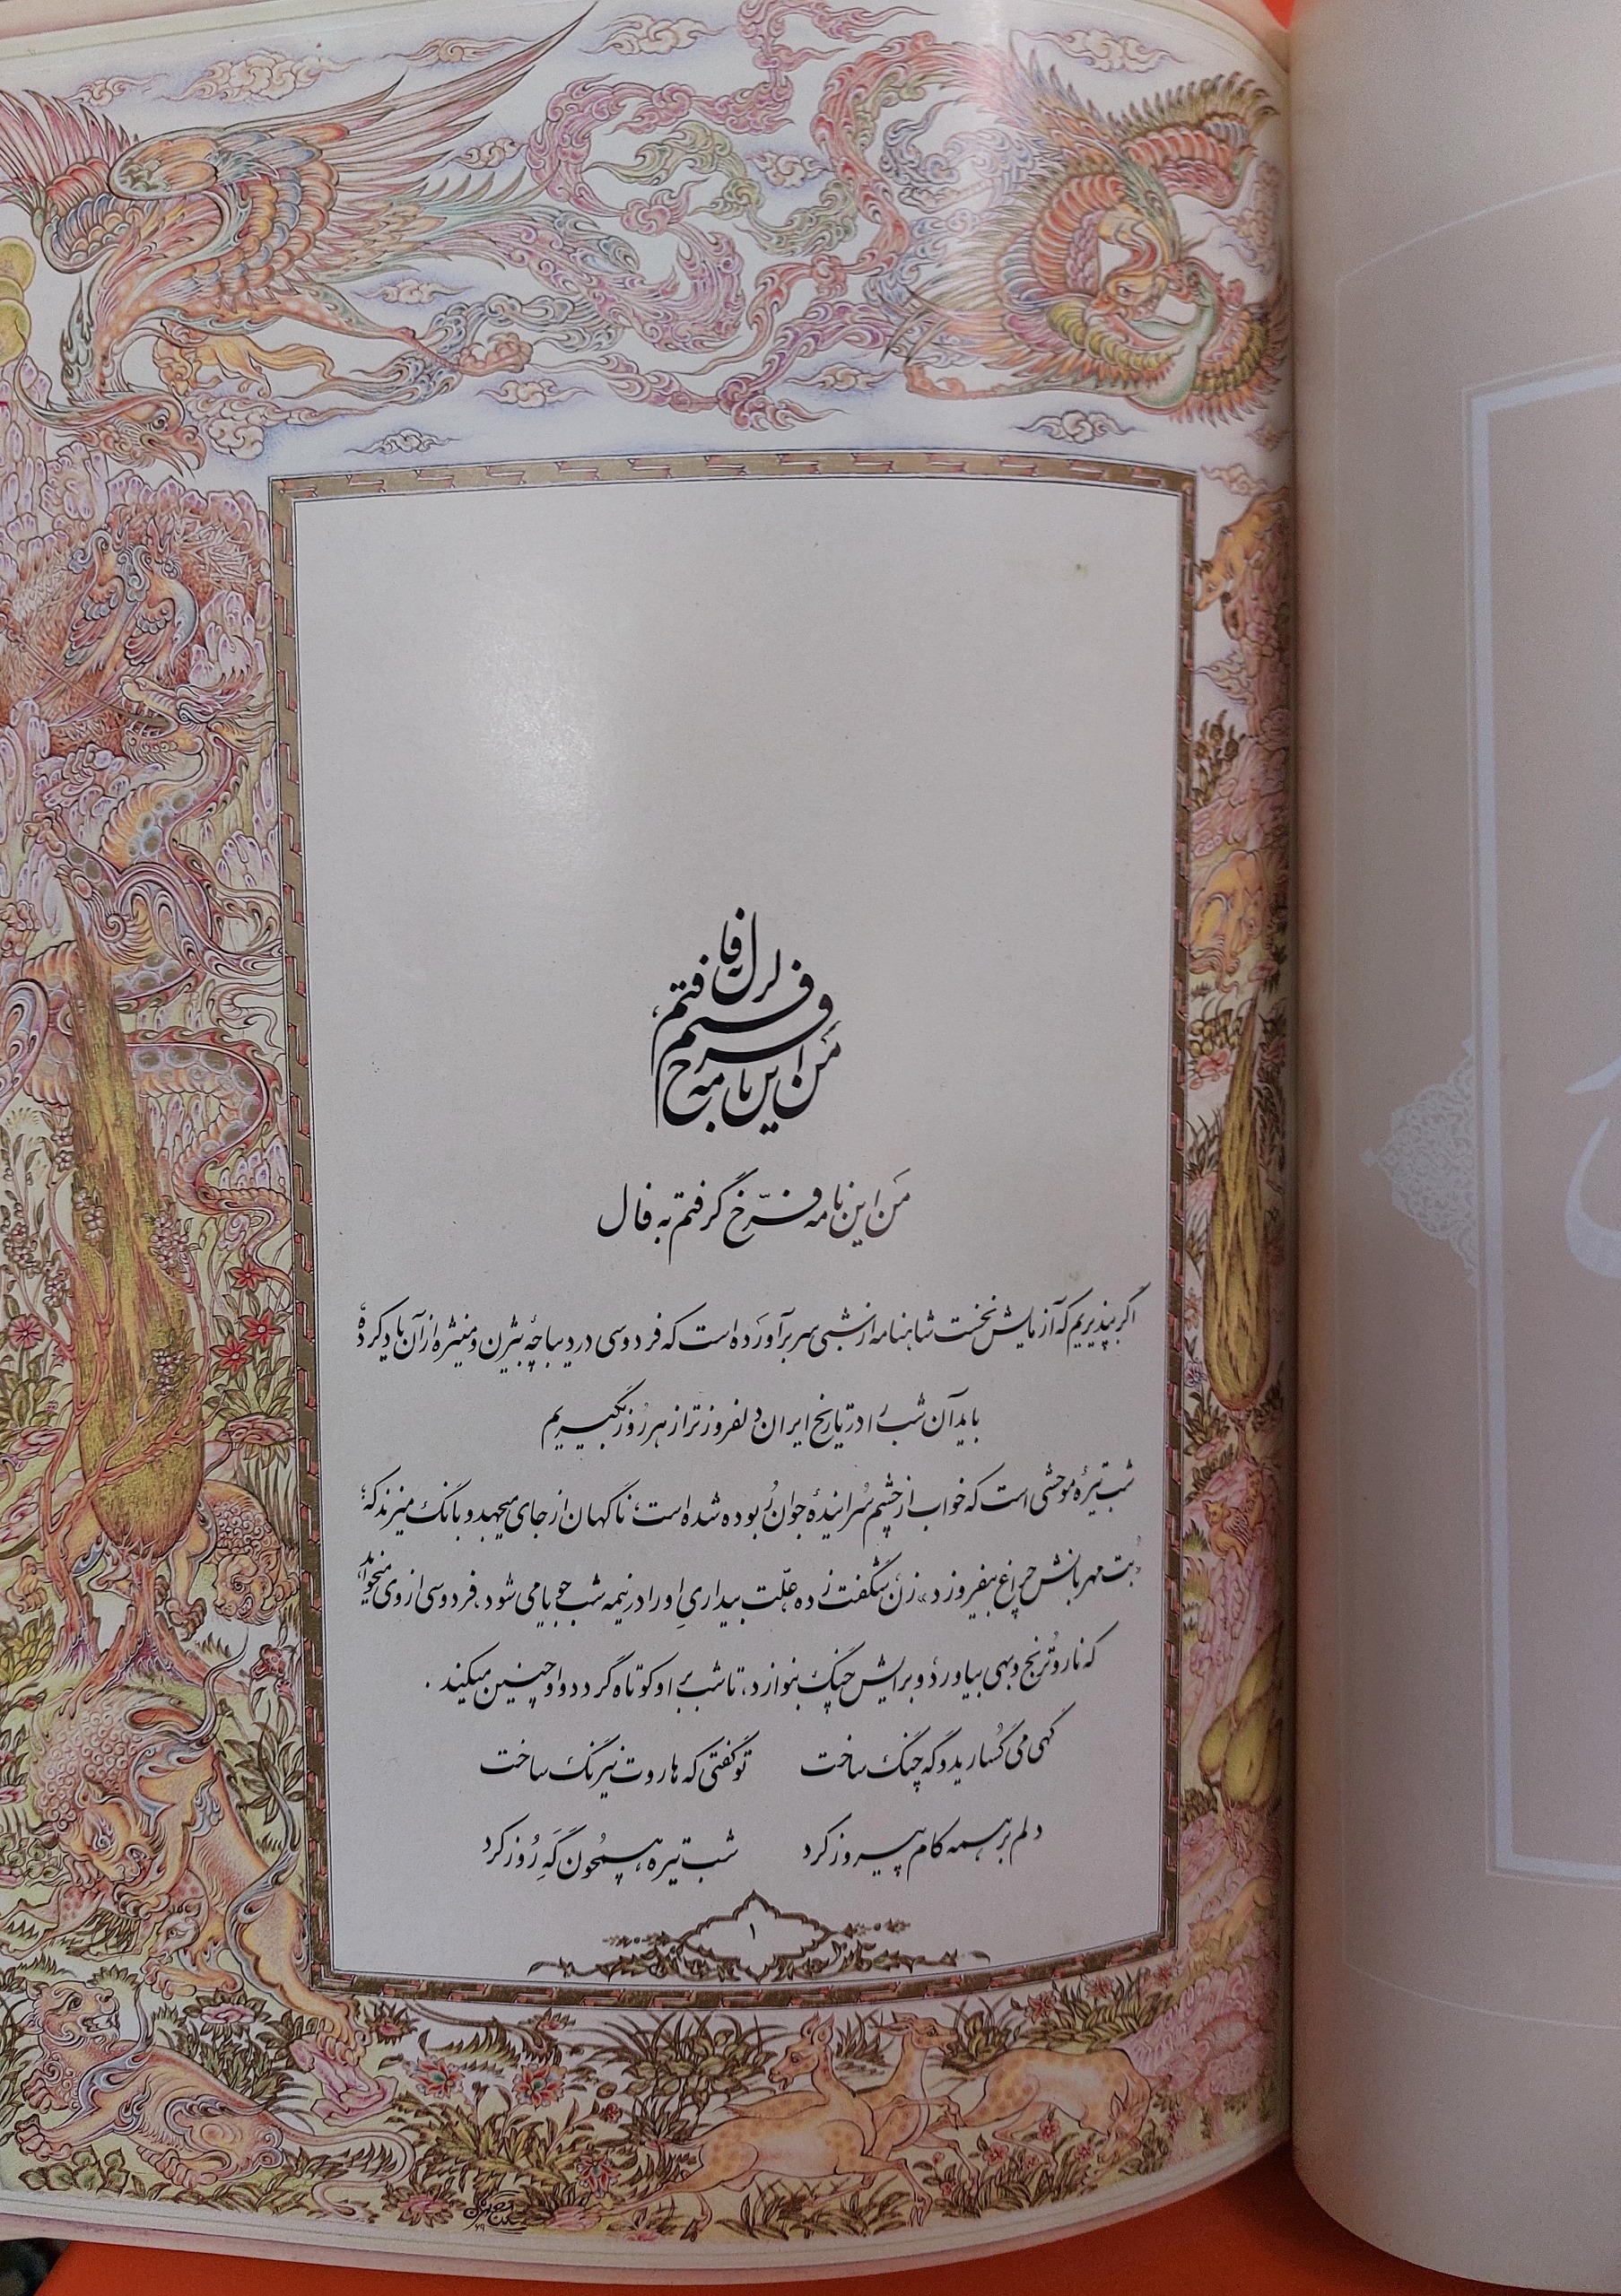 من این نامه فرخ گرفتم به فال
من این نامه فرّخ گرفتم به فال
اگر بپذیریم که آزمایش نخست شاهنامه از شبی سر برآورده است که فردوسی در دیباچهٔ بیژن و منیژه از آن یاد کرده
باید آن شب را در تاریخ ایران دلفروزتر از هر روز بگیریم
شب تیرهٔ موحشی است که خواب از چشم سرایندهٔ جوان رُبوده شده است، ناگهان از جای میجهد و بانگ میزند که:
«بت مهربانش چراغ بیفروزد» زن شگفت زده علّت بیداریِ او را در نیمه شب جویا می شود، فردوسی از وی میخواهد
که نار و تُرنج و بهی بیاورد و برایش چنگ بنوازد، تا شب بر او کوتاه گردد و او چنین میکند.
گهی می گُسارید و گه چنگ ساخت تو گفتی که هاروت نیرنگ ساخت
دلم بر همه کام پیروز کرد شب تیره همچون گَهِ رُوز کرد
۱